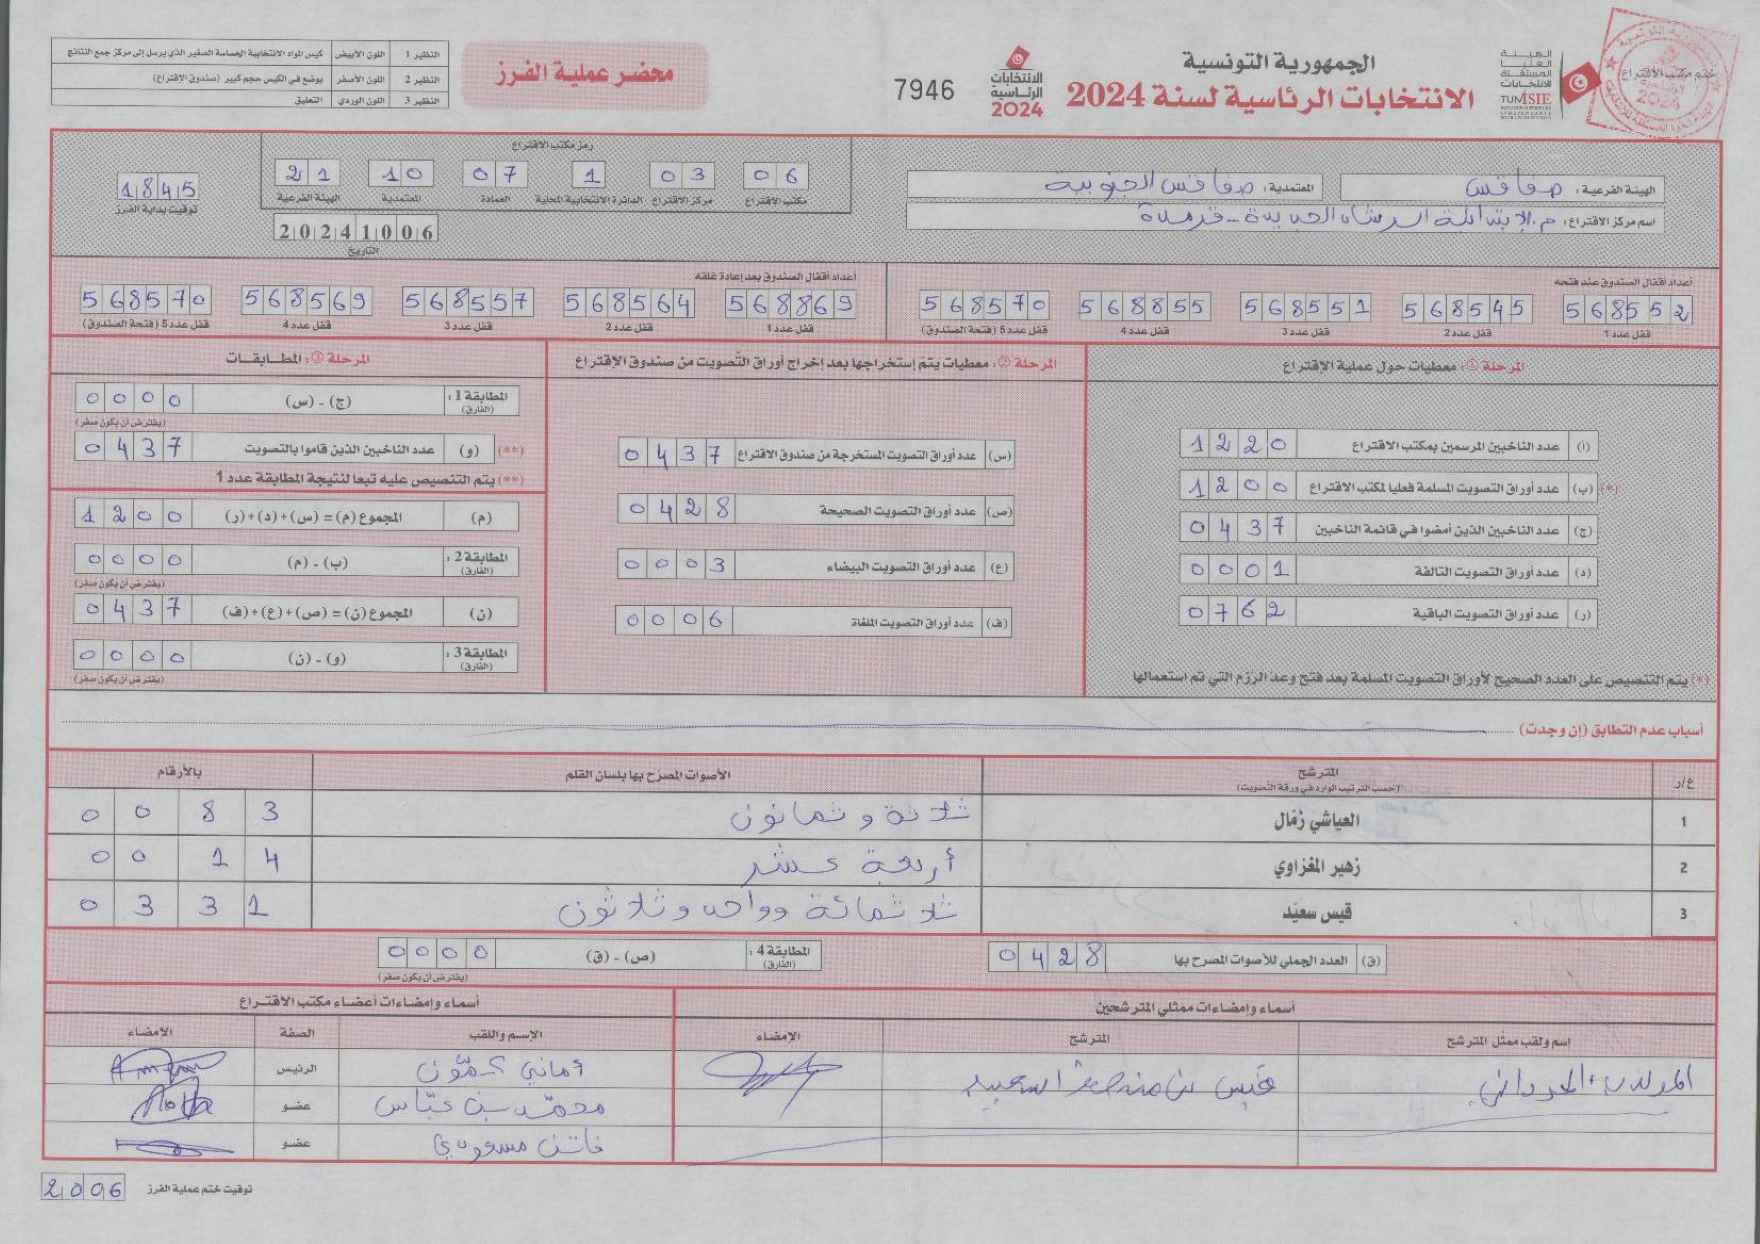 ختم مكتب الاقتراع
الهيئة العليا المستقلة للانتخابات
الجمهورية التونسية
الانتخابات الرئاسية لسنة 2024
الانتخابات الرئاسية 2024
7946
محضر عملية الفرز
النظير 1 اللون الأبيض كيس المواد الانتخابية الحساسة الصغير الذي يرسل إلى مركز جمع النتائج
النظير 2 اللون الأصفر يوضع في الكيس حجم كبير (صندوق الاقتراع)
النظير 3 اللون الوردي التعليق
الهيئة الفرعية: صفاقس المعتمدية: صفاقس الجنوبية
اسم مركز الاقتراع:
رمز مكتب الاقتراع
06 03 1 07 10 21
مكتب الاقتراع مركز الاقتراع الدائرة الانتخابية المحلية العمادة المعتمدية الهيئة الفرعية
20241006
التاريخ
1845
توقيت بداية الفرز
أعداد أقفال الصندوق عند فتحه
568552 568545 568551 568855 568570
قفل عدد 1 قفل عدد 2 قفل عدد 3 قفل عدد 4 قفل عدد 5 (فتحة الصندوق)
أعداد أقفال الصندوق بعد إعادة غلقه
568869 568564 568557 568569 568570
قفل عدد 1 قفل عدد 2 قفل عدد 3 قفل عدد 4 قفل عدد 5 (فتحة الصندوق)
المرحلة ①: معطيات حول عملية الإقتراع
(ا) عدد الناخبين المرسمين بمكتب الاقتراع 1220
(*) (ب) عدد أوراق التصويت المسلمة فعليا لمكتب الاقتراع 1200
(ج) عدد الناخبين الذين أمضوا في قائمة الناخبين 0437
(د) عدد أوراق التصويت التالفة 0001
(ر) عدد أوراق التصويت الباقية 0762
(*) يتم التنصيص على العدد الصحيح لأوراق التصويت المسلمة بعد فتح وعد الرزم التي تم استعمالها
المرحلة ②: معطيات يتم إستخراجها بعد اخراج أوراق التصويت من صندوق الإقتراع
(س) عدد أوراق التصويت المستخرجة من صندوق الاقتراع 0437
(ص) عدد أوراق التصويت الصحيحة 0428
(ع) عدد أوراق التصويت البيضاء 0003
(ف) عدد أوراق التصويت الملغاة 0006
المرحلة ③: المطابقات
المطابقة 1: (الفارق) (ج) - (س) 0000
(يفترض أن يكون صفر)
(**) (و) عدد الناخبين الذين قاموا بالتصويت 0437
(**) يتم التنصيص عليه تبعا لنتيجة المطابقة عدد 1
(م) المجموع (م) = (س)+(د)+(ر) 1200
المطابقة 2: (الفارق) (ب) - (م) 0000
(يفترض أن يكون صفر)
(ن) المجموع (ن) = (ص)+(ع)+(ف) 0437
المطابقة 3: (الفارق) (و) - (ن) 0000
(يفترض أن يكون صفر)
أسباب عدم التطابق (إن وجدت)
ع/ر المترشح (حسب الترتيب الوارد في ورقة التصويت) الأصوات المصرح بها بلسان القلم بالأرقام
1 العياشي زمّال ثلاثة و ثمانون 0083
2 زهير المغزاوي أربعة عشر 0014
3 قيس سعيّد ثلاثمائة وواحد وثلاثون 0331
(ق) العدد الجملي للأصوات المصرح بها 0428
المطابقة 4: (الفارق) (ص) - (ق) 0000
(يفترض أن يكون صفر)
أسماء وإمضاءات ممثلي المترشحين
اسم ولقب ممثل المترشح المترشح الإمضاء
قيس بن منصف السعيد
أسماء وإمضاءات أعضاء مكتب الاقتراع
الإسم واللقب الصفة الامضاء
أماني كمّون الرئيس
محمد بن عبّاس عضو
فاتن مسعودي عضو
توقيت ختم عملية الفرز 2006